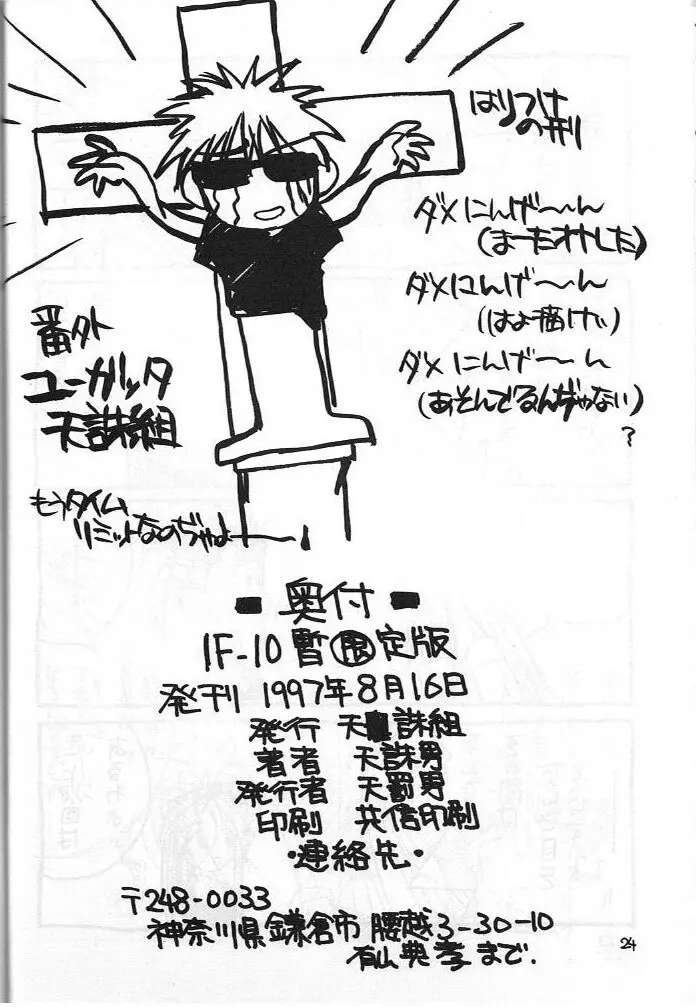 はりつけ
の刑
ダメにんげ〜〜ん
(まーたオトした)
ダメにんげ〜〜ん
(はよ描けい)
ダメにんげ〜〜ん
(あそんでるんぢゃない)
?
番外
ユーガッタ
天誅組
もうタイム
リミットなのぢゃよ――!
■ 奥付 ■
IF-10 暫限定版
発刊 1997年8月16日
発行 天誅組
著者 天誅男
発行者 天罰男
印刷 共信印刷
・連絡先・
〒248-0033
神奈川県鎌倉市 腰越3-30-10
有山典孝まで.
24